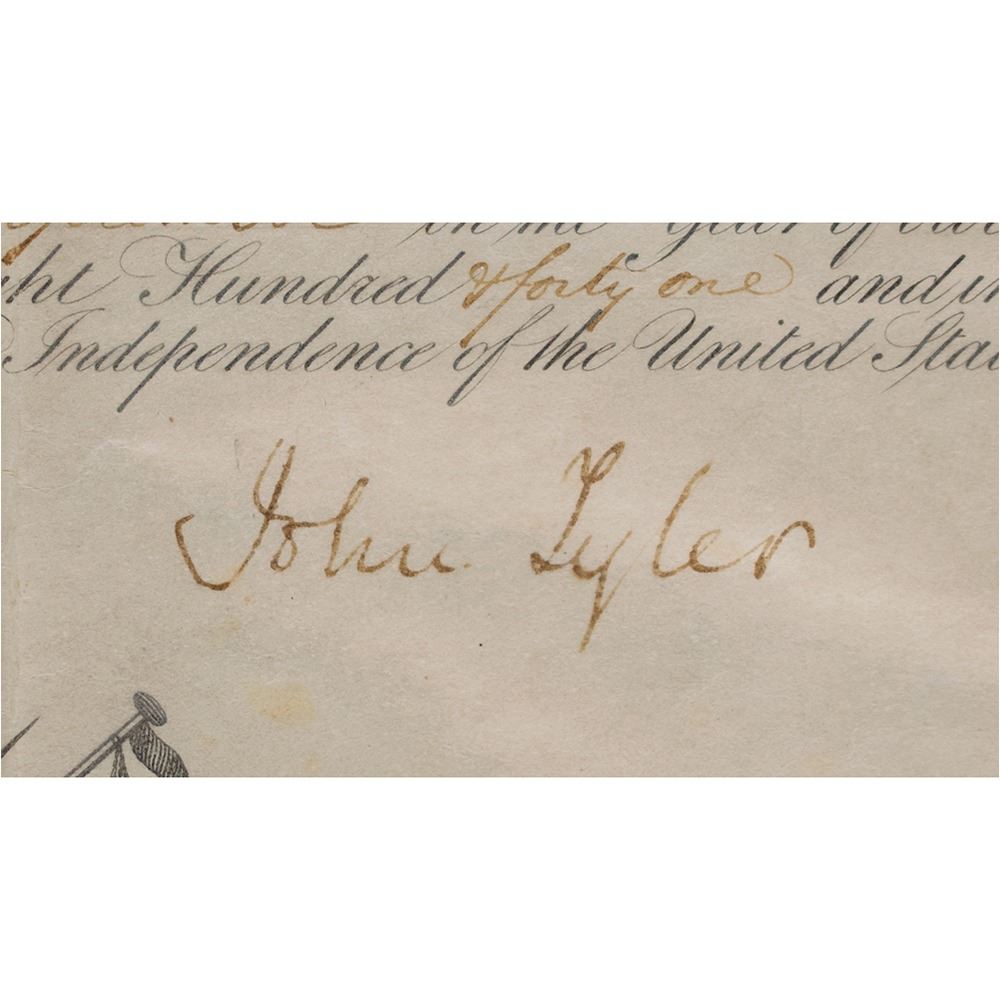 in the Year of our
ht Hundred & forty one and in
Independence of the United Stat
John Tyler